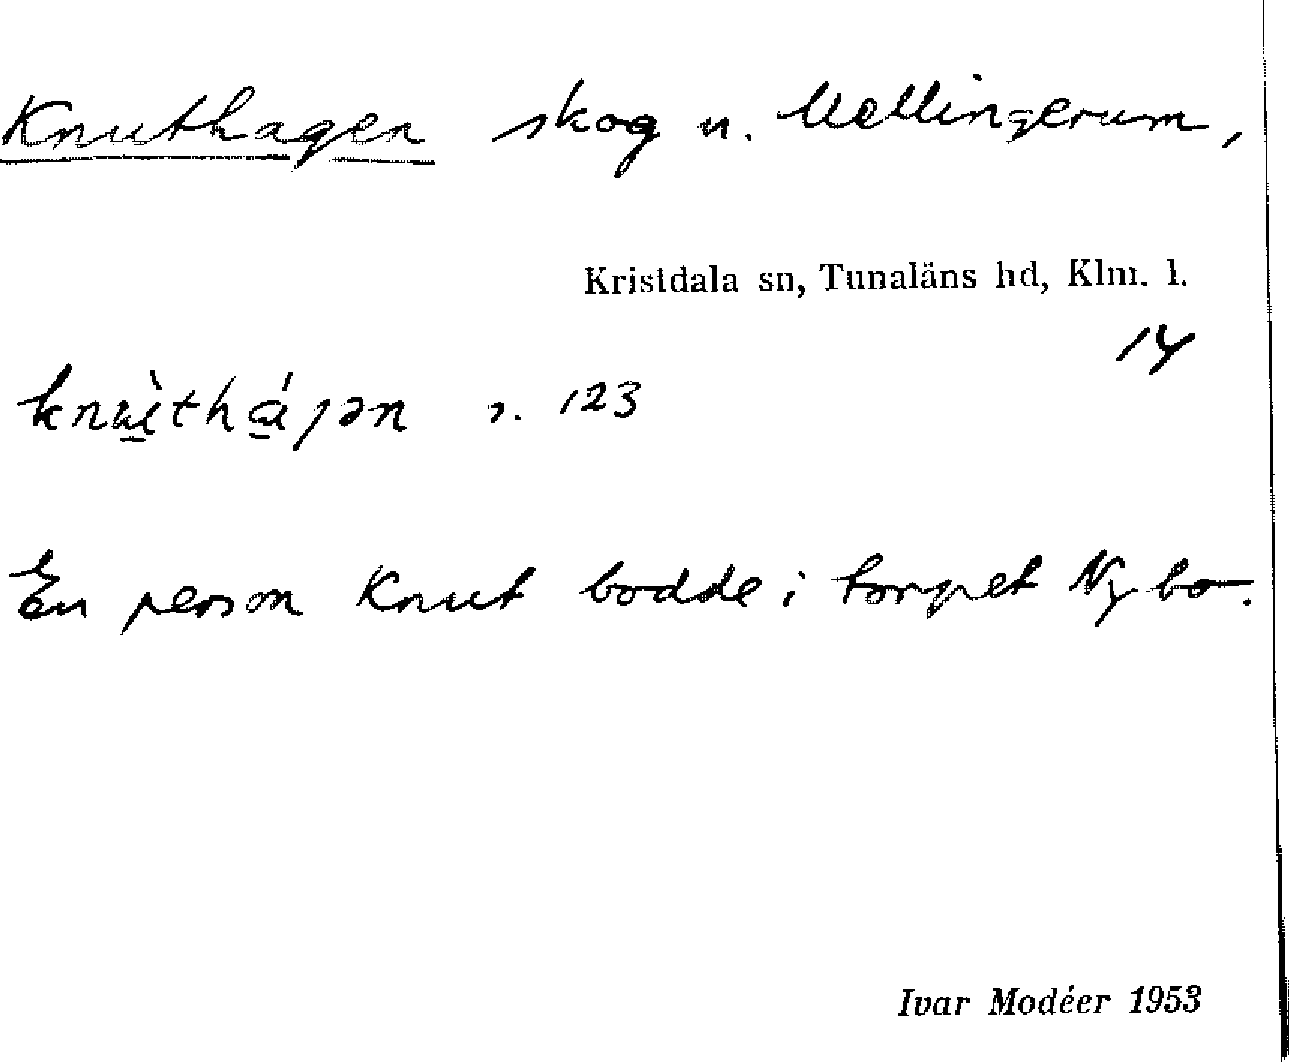 Knuthagen skog u. Mellingerum,
Kristdala sn, Tunaläns hd, Klm. l.
14
knù̲thɑ̲́ɡən s. 123
En person Knut bodde i torpet Nybo.
Ivar Modéer 1953